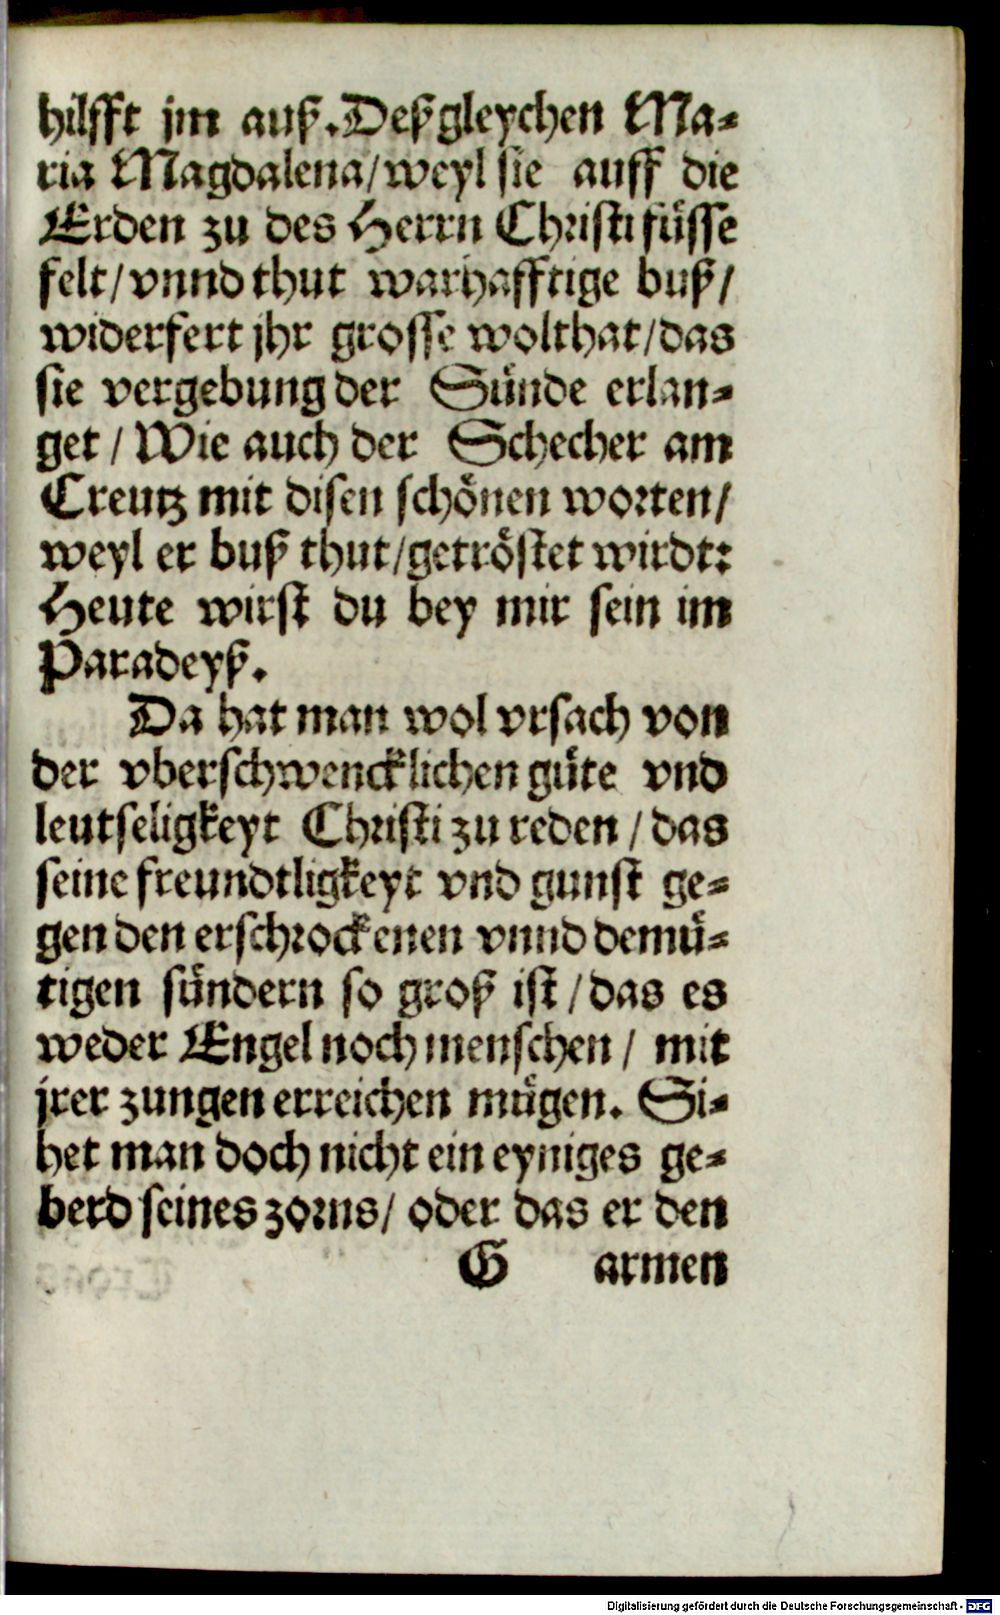 hilfft jm auß. Deßgleychen Ma-
ria Magdalena/ weyl sie auff die
Erden zu des Herrn Christi füsse
felt/ vnnd thut warhafftige buß/
widerfert jhr grosse wolthat/ das
sie vergebung der Sünde erlan-
get / Wie auch der Schecher am
Creutz mit disen schönen worten/
weyl er buß thut/ getröstet wirdt:
Heute wirst du bey mir sein im
Paradeyß.
Da hat man wol vrsach von
der vberschwencklichen güte vnd
leutseligkeyt Christi zu reden / das
seine freundtligkeyt vnd gunst ge-
gen den erschrockenen vnnd demü-
tigen sündern so groß ist / das es
weder Engel noch menschen / mit
jrer zungen erreichen mügen. Si-
het man doch nicht ein eyniges ge-
berd seines zorns/ oder das er den
G armen
Digitalisierung gefördert durch die Deutsche Forschungsgemeinschaft - DFG